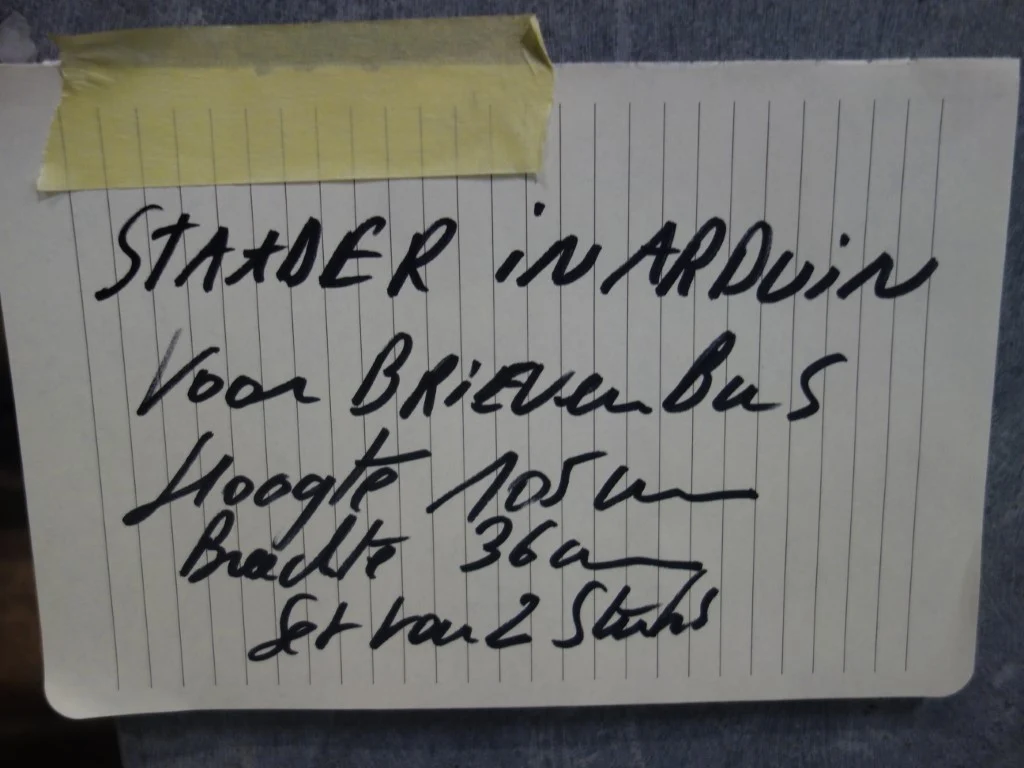 STAANDER IN ARDUIN
Voor BRIEVenBuS
Hoogte 105 cm
Breedte 36 cm
Set van 2 Stuks